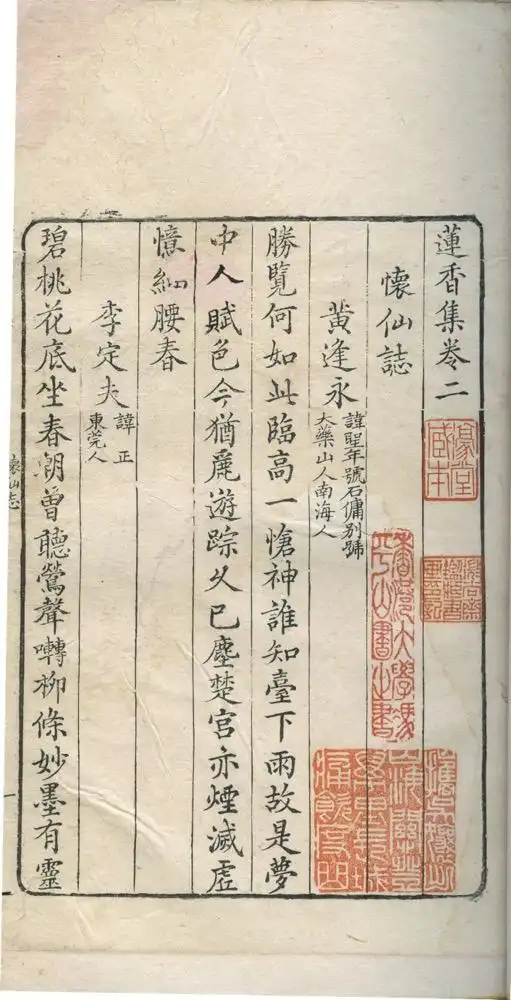 蓮香集卷二
懷仙誌
黃逢永
諱聖年號石傭别號
大藥山人南海人
勝覽何如此臨高一愴神誰知臺下雨故是夢
中人賦色今猶麗遊踪久已塵楚宮亦煙滅虛
憶細腰春
李定夫
諱正
東莞人
碧桃花底坐春朝曾聽鶯聲囀柳條妙墨有靈
懷仙志